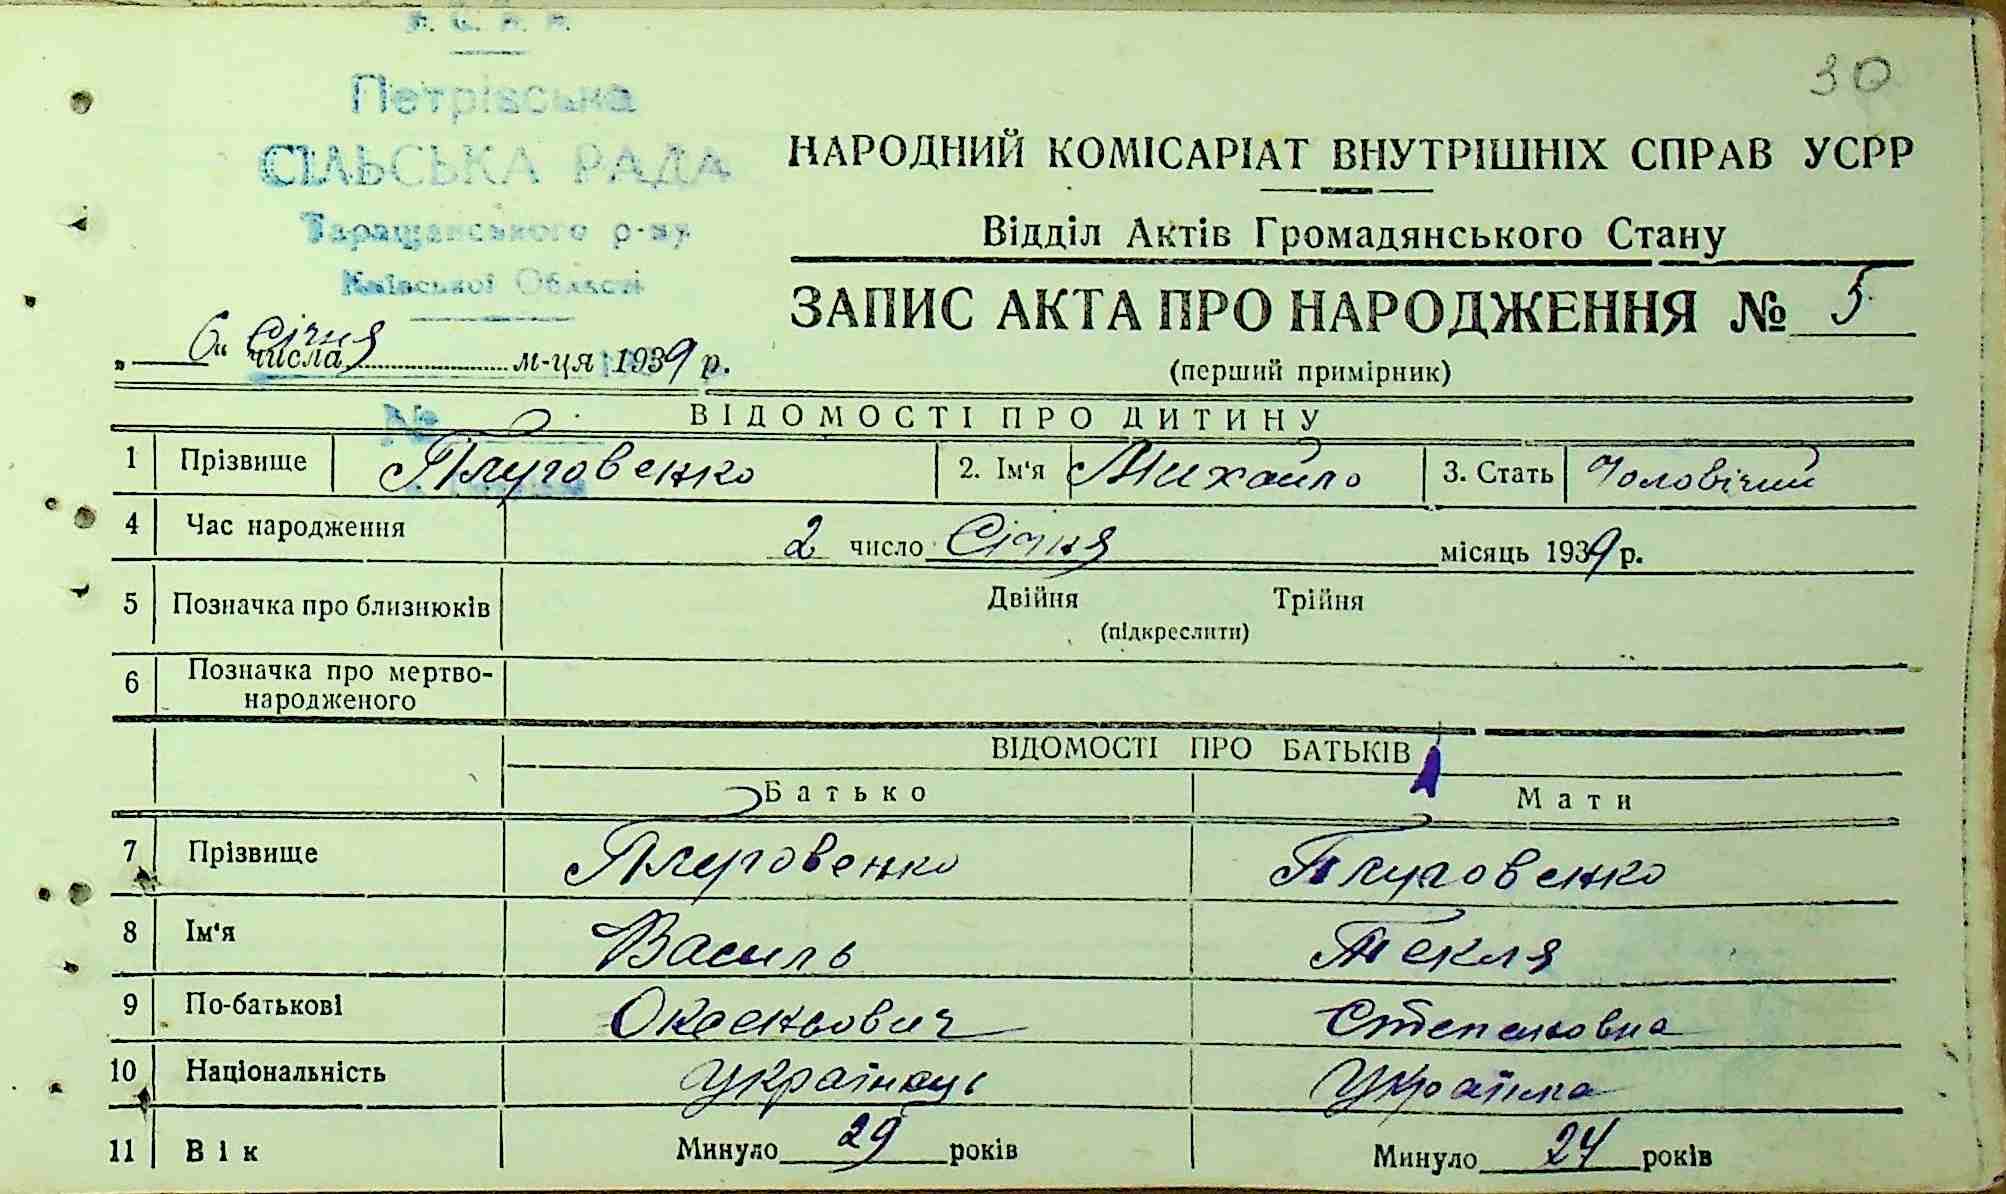 30
Петрівська
СІЛЬСЬКА РАДА
Таращанського р-ну
Київської Області
НАРОДНИЙ КОМІСАРІАТ ВНУТРІШНІХ СПРАВ УСРР
Відділ Актів Громадянського Стану
ЗАПИС АКТА ПРО НАРОДЖЕННЯ № 5
(перший примірник)
„ 6 " числа Січня м-ця 1939 р.
№
ВІДОМОСТІ ПРО ДИТИНУ
1 Прізвище Плуговенко 2. Ім'я Михайло 3. Стать Чоловічий
4 Час народження 2 число Січня місяць 1939 р.
5 Позначка про близнюків Двійня Трійня
(підкреслити)
6 Позначка про мертво-
народженого
ВІДОМОСТІ ПРО БАТЬКІВ
Батько Мати
7 Прізвище Плуговенко Плуговенко
8 Ім'я Василь Текля
9 По-батькові Оксеньович Степановна
10 Національність Українець Українка
11 Вік Минуло 29 років Минуло 24 років